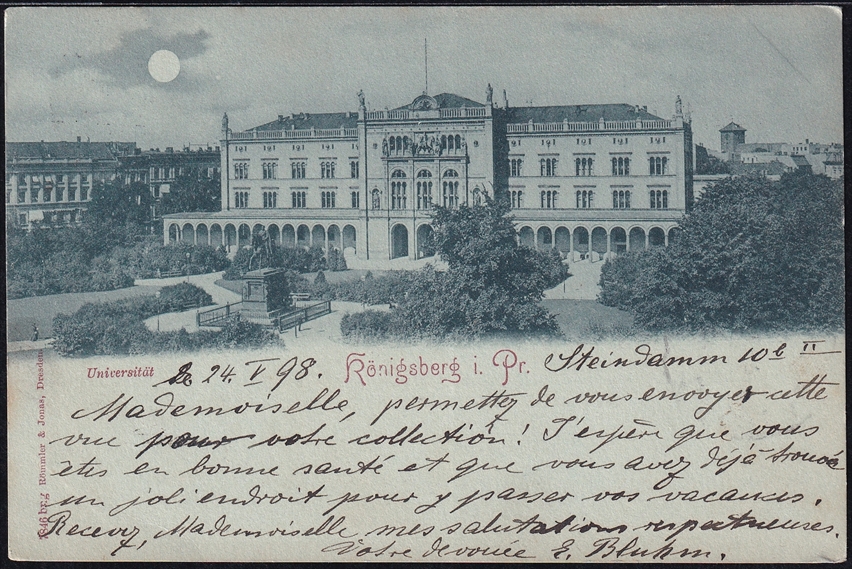 Universität
24. V 98.
Königsberg i. Pr.
Steindamm 10b II
Mademoiselle, permettez de vous envoyer cette
vue pour votre collection! J'espère que vous
êtes en bonne santé et que vous avez déjà trouvé
un joli endroit pour y passer vos vacances.
Recevez, Mademoiselle mes salutations respectueuses.
Votre devouée E. Bluhm.
Römmler & Jonas, Dresden